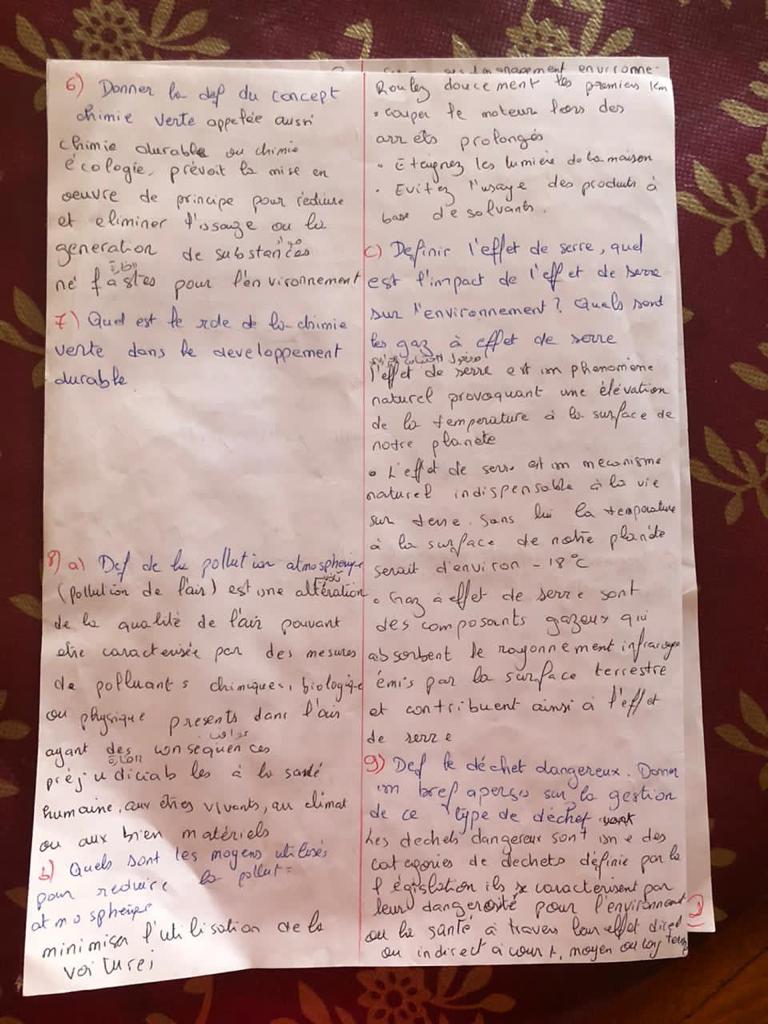 6) Donner la def du concept
chimie verte appelée aussi
chimie durable ou chimie
écologie, prévoit la mise en
oeuvre de principe pour réduire
et eliminer l'usage ou la
generation de substances
néfastes pour l'environnement
7) Quel est le role de la chimie
verte dans le developpement
durable
8) a) Def de la pollution atmospherique
(pollution de l'air) est une altération
de la qualité de l'air pouvant
etre caracterisée par des mesures
de polluants chimiques, biologique
ou physique presents dans l'air
ayant des consequences
préjudiciables à la santé
humaine, aux etres vivants, au climat
ou aux bien matériels
b) Quels sont les moyens utilisés
pour reduire la pollut=
atmospherique
minimiser l'utilisation de la
voiture;
management environne-
Roulez doucement les premiers Km
• couper le moteur lors des
arrêts prolongés
• Eteignez les lumière de la maison
• Evitez l'usage des produits à
base de solvants.
C) Definir l'effet de serre, quel
est l'impact de l'effet de serre
sur l'environnement? Quels sont
les gaz à effet de serre
l'effet de serre est un phenomène
naturel provoquant une élévation
de la temperature à la surface de
notre planète
• L'effet de serre est un mecanisme
naturel indispensable à la vie
sur terre. Sans lui la temperature
à la surface de notre planète
serait d'environ - 18°C
• Gaz à effet de serre sont
des composants gazeux qui
absorbent le rayonnement infrarouge
émis par la surface terrestre
et contribuent ainsi à l'effet
de serre
9) Def le déchet dangereux. Donner
un bref aperçu sur la gestion
de ce type de déchet
Les dechets dangereux sont une des
categories de dechets définie par la
législation ils se caracterisent par
leur dangerosité pour l'environnement
ou la santé à travers leur effet direct
ou indirect à court, moyen ou long terme
2